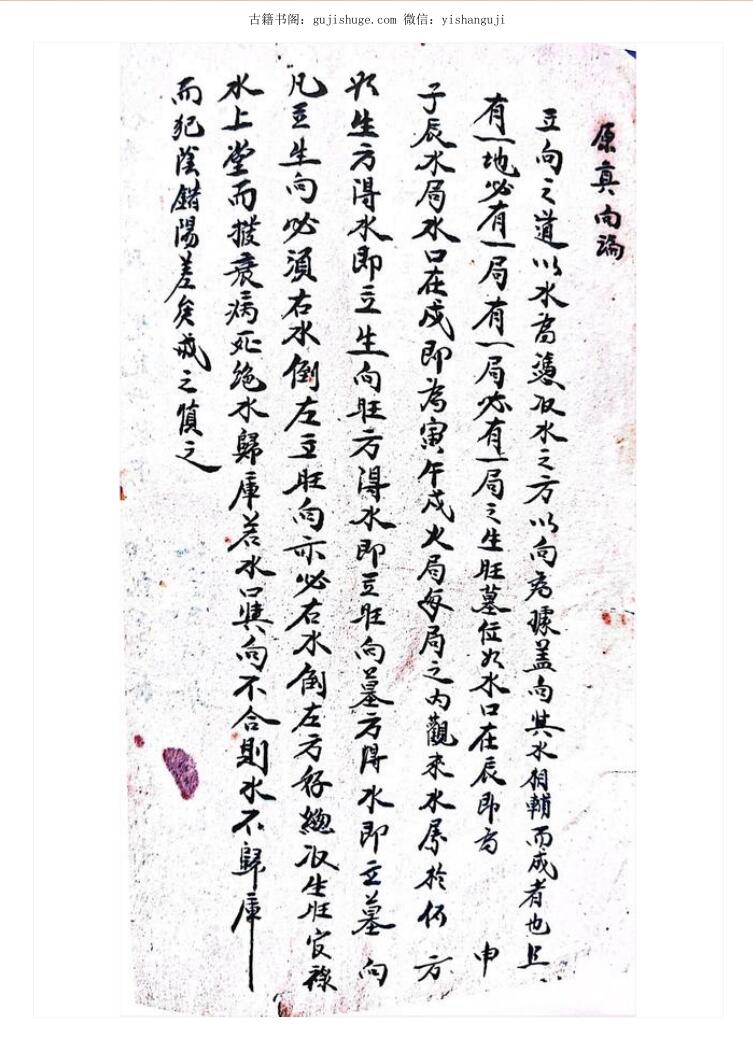 古籍书阁：gujishuge.com 微信：yishanguji
原真向論
立向之道以水為憑收水之方以向為據蓋向其水相輔而成者也且
有一地必有一局有一局必有一局之生旺墓位如水口在辰即為申
子辰水局水口在戌即為寅午戌火局每局之内觀来水屬於何方
如生方得水即立生向旺方得水即立旺向墓方得水即立墓向
凡立生向必須右水倒左立旺向亦必右水倒左方好總收生旺官祿
水上堂而撥衰病死絶水歸庫若水口與向不合則水不歸庫
而犯陰錯陽差矣戒之慎之